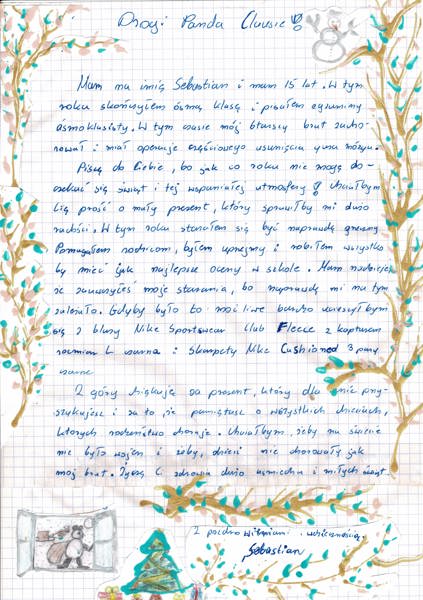 Drogi Panda Clausie!
Mam na imię Sebastian i mam 15 lat. W tym
roku skończyłem ósmą klasę i pisałem egzaminy
ósmoklasisty. W tym czasie mój starszy brat zacho-
rował i miał operację częściowego usunięcia guza mózgu.
Piszę do Ciebie, bo jak co roku nie mogę do-
czekać się świąt i tej wspaniałej atmosfery! Chciałbym
Cię prosić o mały prezent, który sprawiłby mi dużo
radości. W tym roku starałem się być naprawdę grzeczny
Pomagałem rodzicom, byłem uprzejmy i robiłem wszystko
by mieć jak najlepsze oceny w szkole. Mam nadzieję,
że zauważyłeś moje starania, bo naprawdę mi na tym
zależało. Gdyby było to możliwe bardzo ucieszyłbym
się z bluzy Nike Sportswear Club Fleece z kapturem
rozmiar L czarna i skarpety Nike Cushioned 3 pary
czarne
Z góry dziękuję za prezent, który dla mnie przy-
szykujesz i za to, że pamiętasz o wszystkich dzieciach,
których rodzeństwo choruje. Chciałbym, żeby na świecie
nie było wojen i żeby, dzieci nie chorowały jak
mój brat. Życzę Ci zdrowia dużo uśmiechu i miłych świąt
Z pozdrowieniami i wdzięcznością,
Sebastian